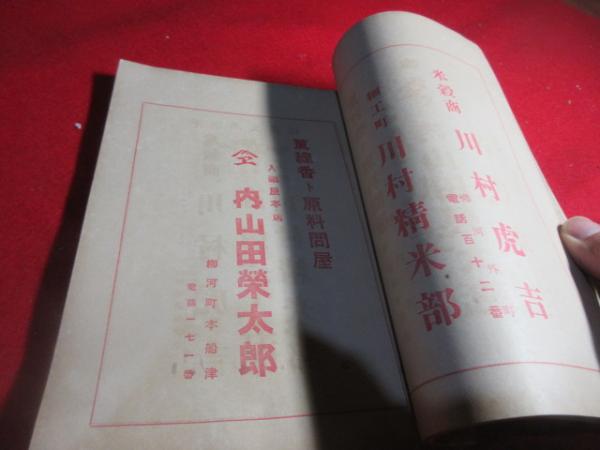 米穀商
川村虎吉
柳河外町
電話百十二番
細工町
川村精米部
薫線香ト原料問屋
エ
内山田榮太郎
柳河町本船津
電話一七一番